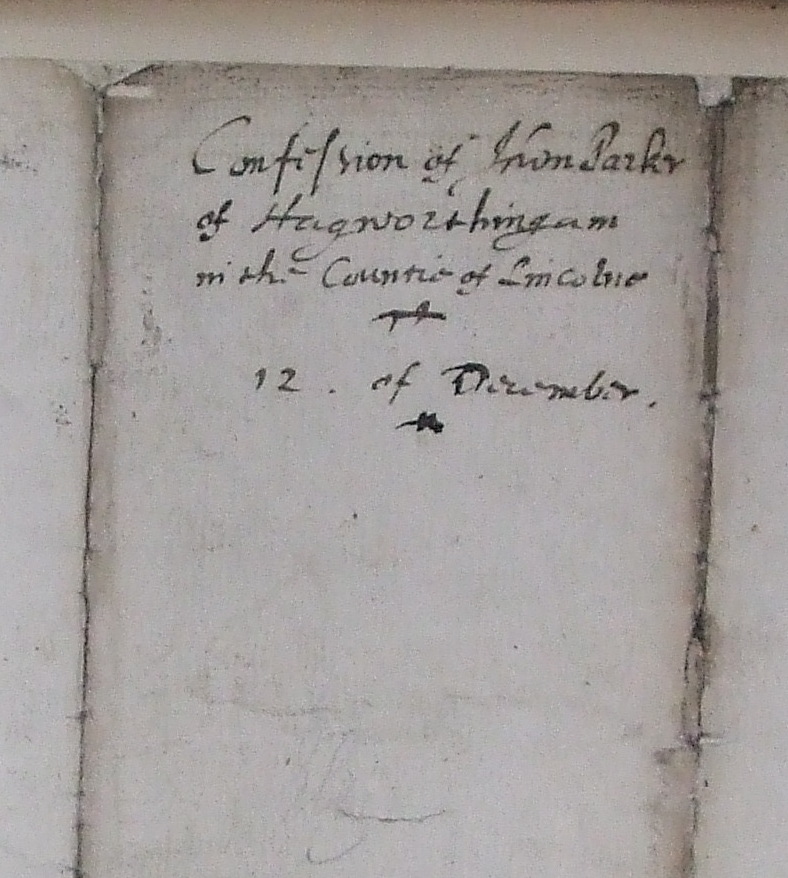 Confession of Jhon Parker
of Hagworthingam
in the Countie of Lincolne
12 . of December.